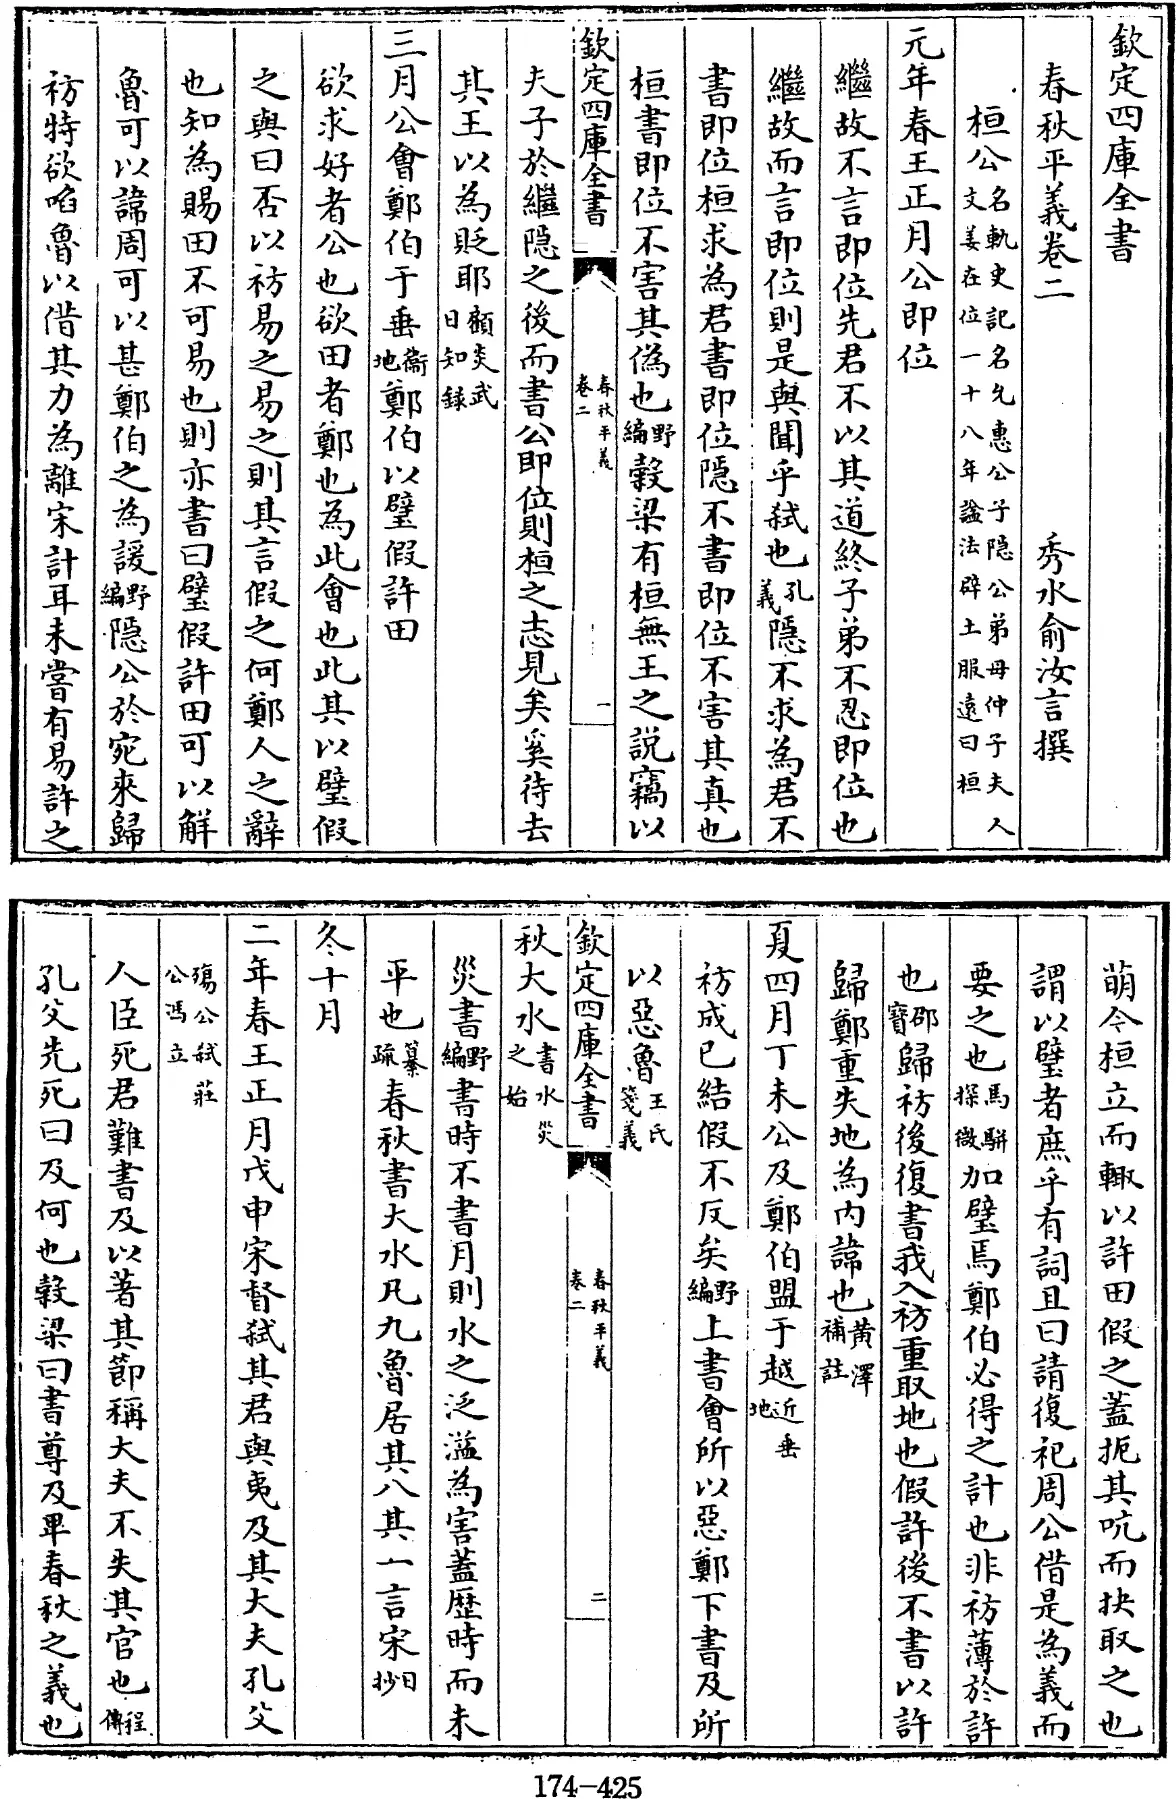 欽定四庫全書
春秋平義卷二
秀水俞汝言撰
桓公名軌史記名允惠公子隱公弟母仲子夫人
文姜在位一十八年諡法辟土服遠曰桓
元年春王正月公即位
繼故不言即位先君不以其道終子弟不忍即位也
繼故而言即位則是與聞乎弑也孔義隱不求為君不
書即位桓求為君書即位隱不書即位不害其真也
桓書即位不害其偽也野編穀梁有桓無王之説竊以
欽定四庫全書
春秋平義
卷二
一
夫子於繼隱之後而書公即位則桓之志見矣奚待去
其王以為貶耶顧炎武日知録
三月公會鄭伯于垂衞地鄭伯以璧假許田
欲求好者公也欲田者鄭也為此會也此其以璧假
之與曰否以祊易之易之則其言假之何鄭人之辭
也知為賜田不可易也則亦書曰璧假許田可以解
魯可以諱周可以甚鄭伯之為諼野編隱公於宛來歸
祊特欲啗魯以借其力為離宋計耳未嘗有易許之
萌今桓立而輙以許田假之蓋扼其吭而抉取之也
謂以璧者庶乎有詞且曰請復祀周公借是為義而
要之也馬駢探微加璧焉鄭伯必得之計也非祊薄於許
也邵寶歸祊後復書我入祊重取地也假許後不書以許
歸鄭重失地為内諱也黄澤補註
夏四月丁未公及鄭伯盟于越近垂地
祊成已結假不反矣野編上書會所以惡鄭下書及所
以惡魯王氏箋義
欽定四庫全書
春秋平義
卷二
二
秋大水書水災之始
災書野編書時不書月則水之泛溢為害蓋歴時而未
平也纂疏春秋書大水凡九魯居其八其一言宋日抄
冬十月
二年春王正月戊申宋督弑其君與夷及其大夫孔父
殤公弑莊公馮立
人臣死君難書及以著其節稱大夫不失其官也程傳
孔父先死曰及何也穀梁曰書尊及卑春秋之義也
174-425